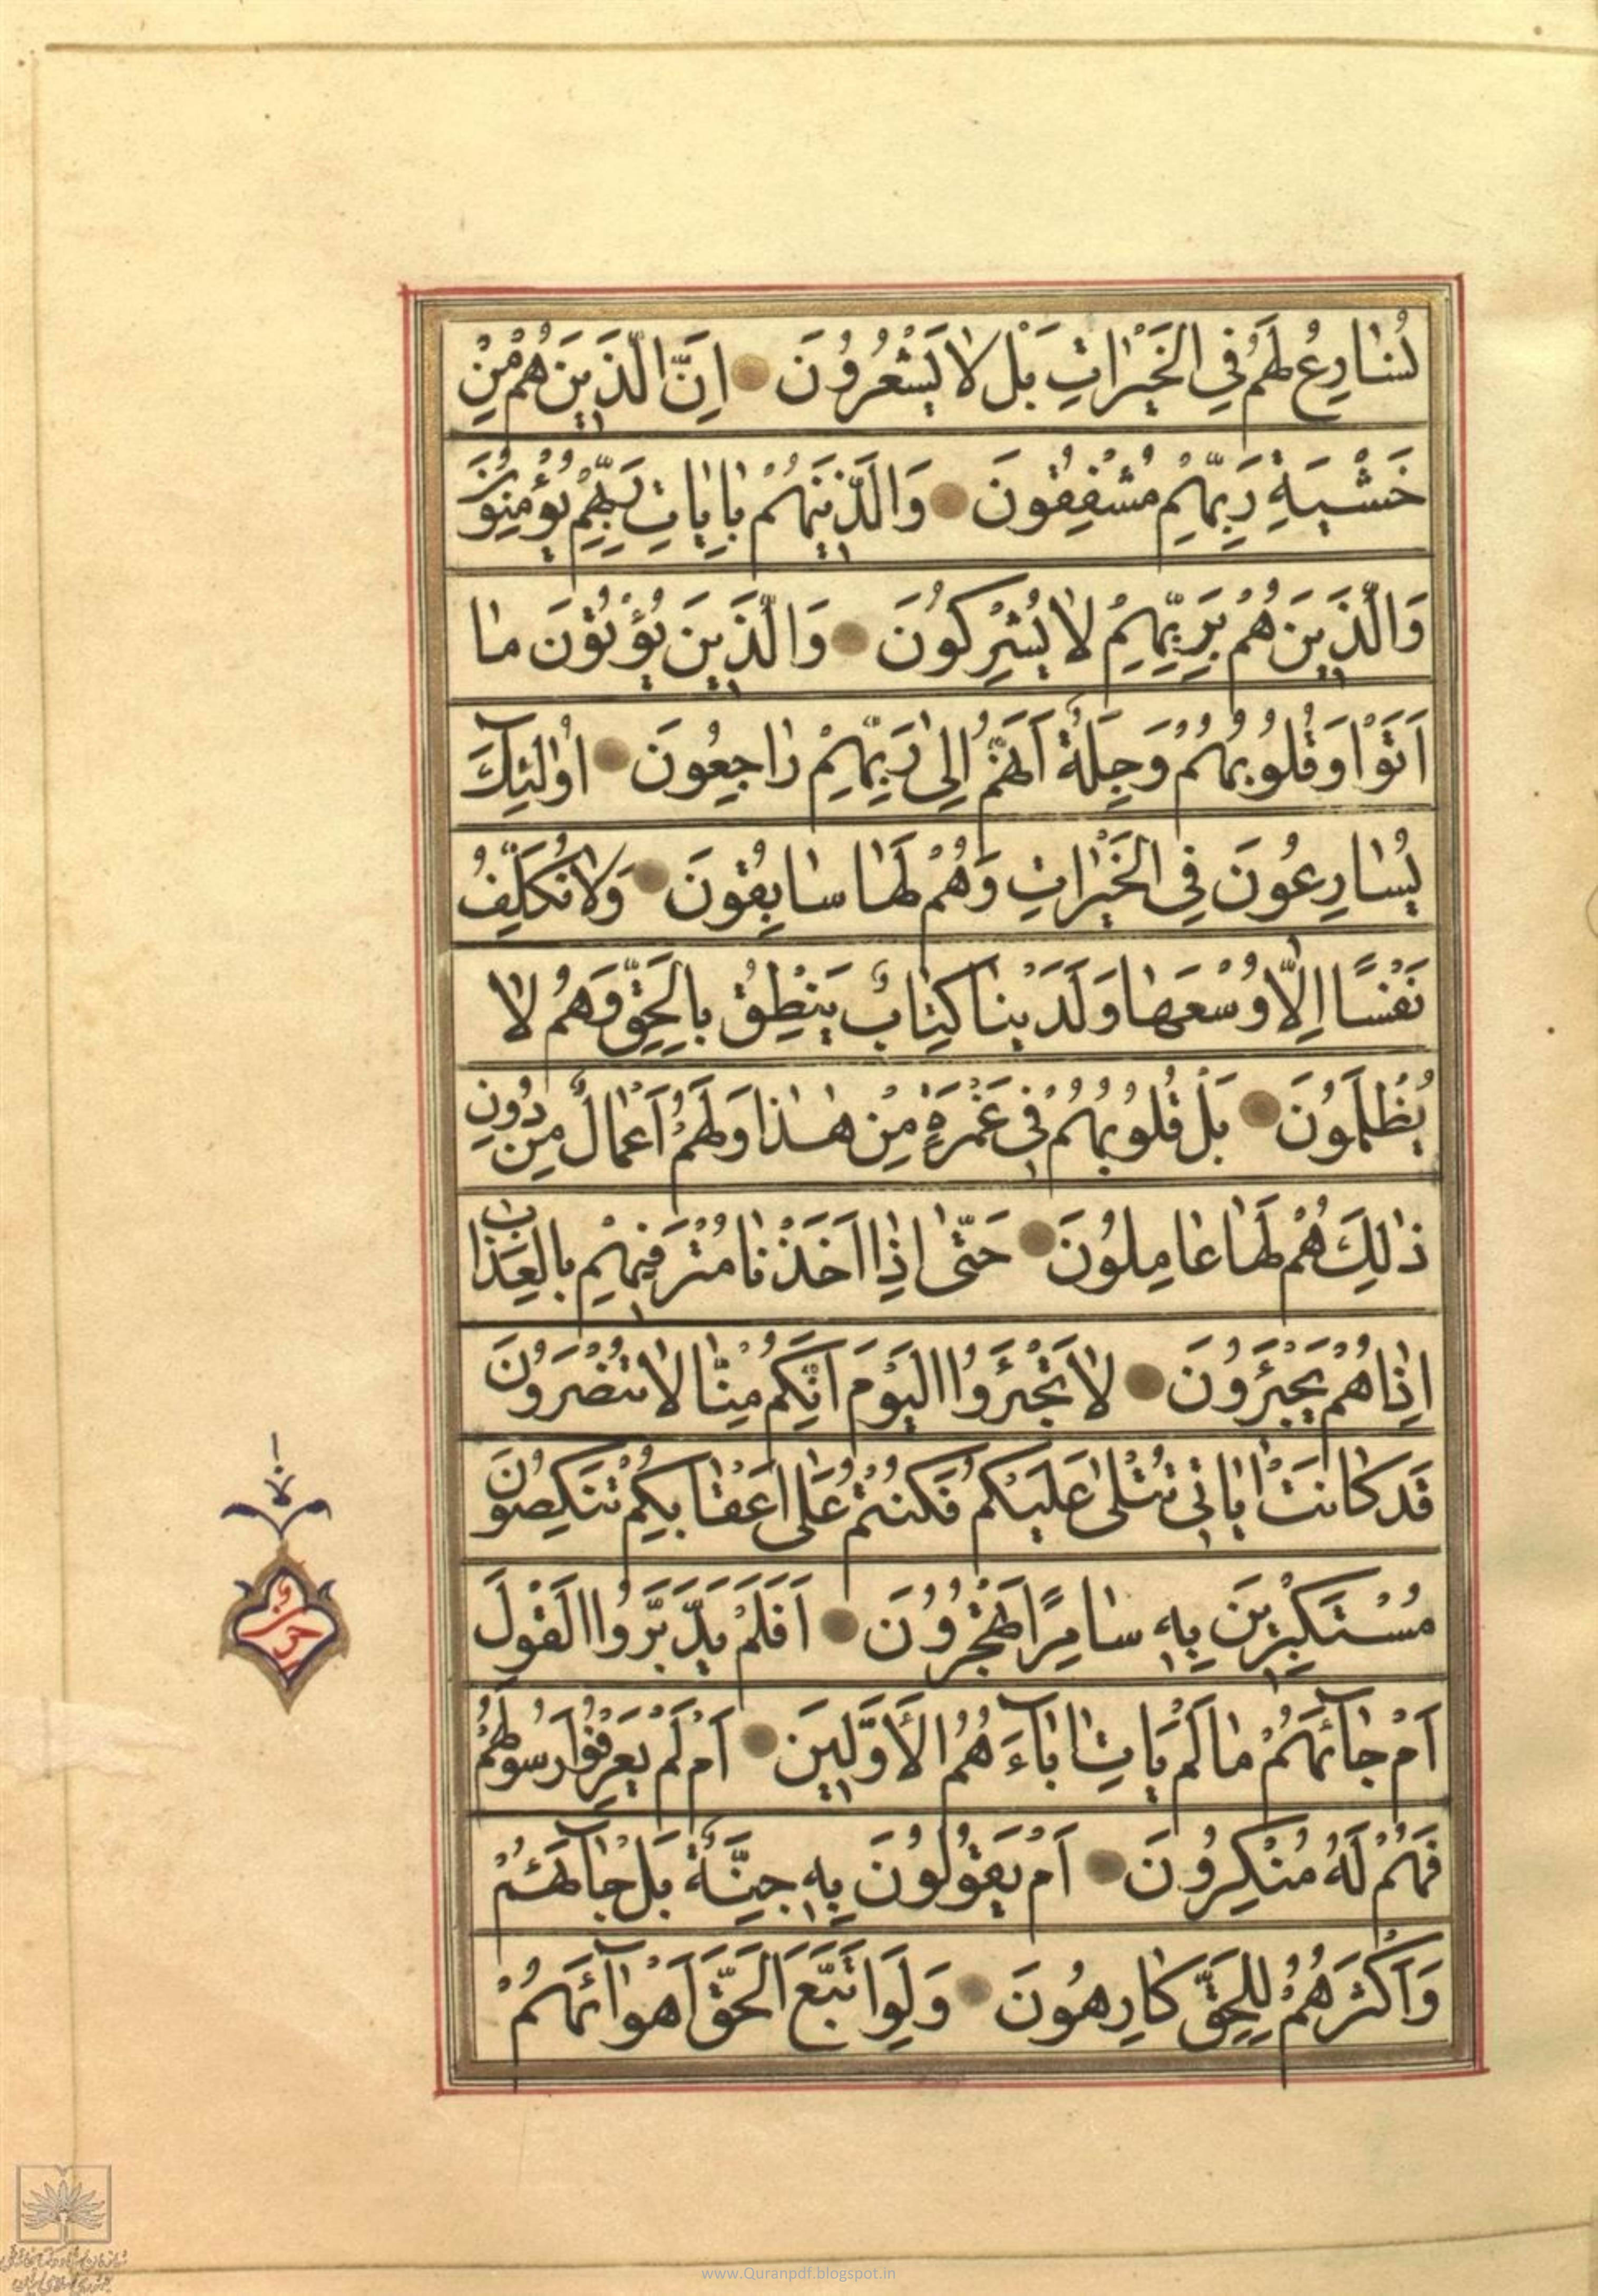 نُسَارِعُ لَهُمْ فِي الْخَيْرَاتِ بَلْ لَا يَشْعُرُونَ اِنَّ الَّذِينَ هُمْ مِنْ
خَشْيَةِ رَبِّهِمْ مُشْفِقُونَ وَالَّذِينَ هُمْ بِاٰيَاتِ رَبِّهِمْ يُؤْمِنُونَ
وَالَّذِينَ هُمْ بِرَبِّهِمْ لَا يُشْرِكُونَ وَالَّذِينَ يُؤْتُوْنَ مَا
اَتَوْا وَقُلُوبُهُمْ وَجِلَةٌ اَنَّهُمْ اِلٰى رَبِّهِمْ رَاجِعُونَ اُولٰئِكَ
يُسَارِعُونَ فِي الْخَيْرَاتِ وَهُمْ لَهَا سَابِقُونَ وَلَا نُكَلِّفُ
نَفْسًا اِلَّا وُسْعَهَا وَلَدَيْنَا كِتَابٌ يَنْطِقُ بِالْحَقِّ وَهُمْ لَا
يُظْلَمُونَ بَلْ قُلُوبُهُمْ فِي غَمْرَةٍ مِنْ هٰذَا وَلَهُمْ اَعْمَالٌ مِنْ دُونِ
ذٰلِكَ هُمْ لَهَا عَامِلُونَ حَتّٰى اِذَا اَخَذْنَا مُتْرَفِيهِمْ بِالْعَذَابِ
اِذَا هُمْ يَجْئَرُونَ لَا تَجْئَرُوا الْيَوْمَ اِنَّكُمْ مِنَّا لَا تُنْصَرُونَ
قَدْ كَانَتْ اٰيَاتِي تُتْلٰى عَلَيْكُمْ فَكُنْتُمْ عَلٰى اَعْقَابِكُمْ تَنْكِصُونَ
مُسْتَكْبِرِينَ بِهِ سَامِرًا تَهْجُرُونَ اَفَلَمْ يَدَّبَّرُوا الْقَوْلَ
اَمْ جَآئَهُمْ مَا لَمْ يَاْتِ اٰبَآءَهُمُ الْاَوَّلِينَ اَمْ لَمْ يَعْرِفُوا رَسُولَهُمْ
فَهُمْ لَهُ مُنْكِرُونَ اَمْ يَقُولُونَ بِهِ جِنَّةٌ بَلْ جَآئَهُمْ
وَاَكْثَرُهُمْ لِلْحَقِّ كَارِهُونَ وَلَوِ اتَّبَعَ الْحَقُّ اَهْوَآئَهُمْ
حزب
www.Quranpdf.blogspot.in